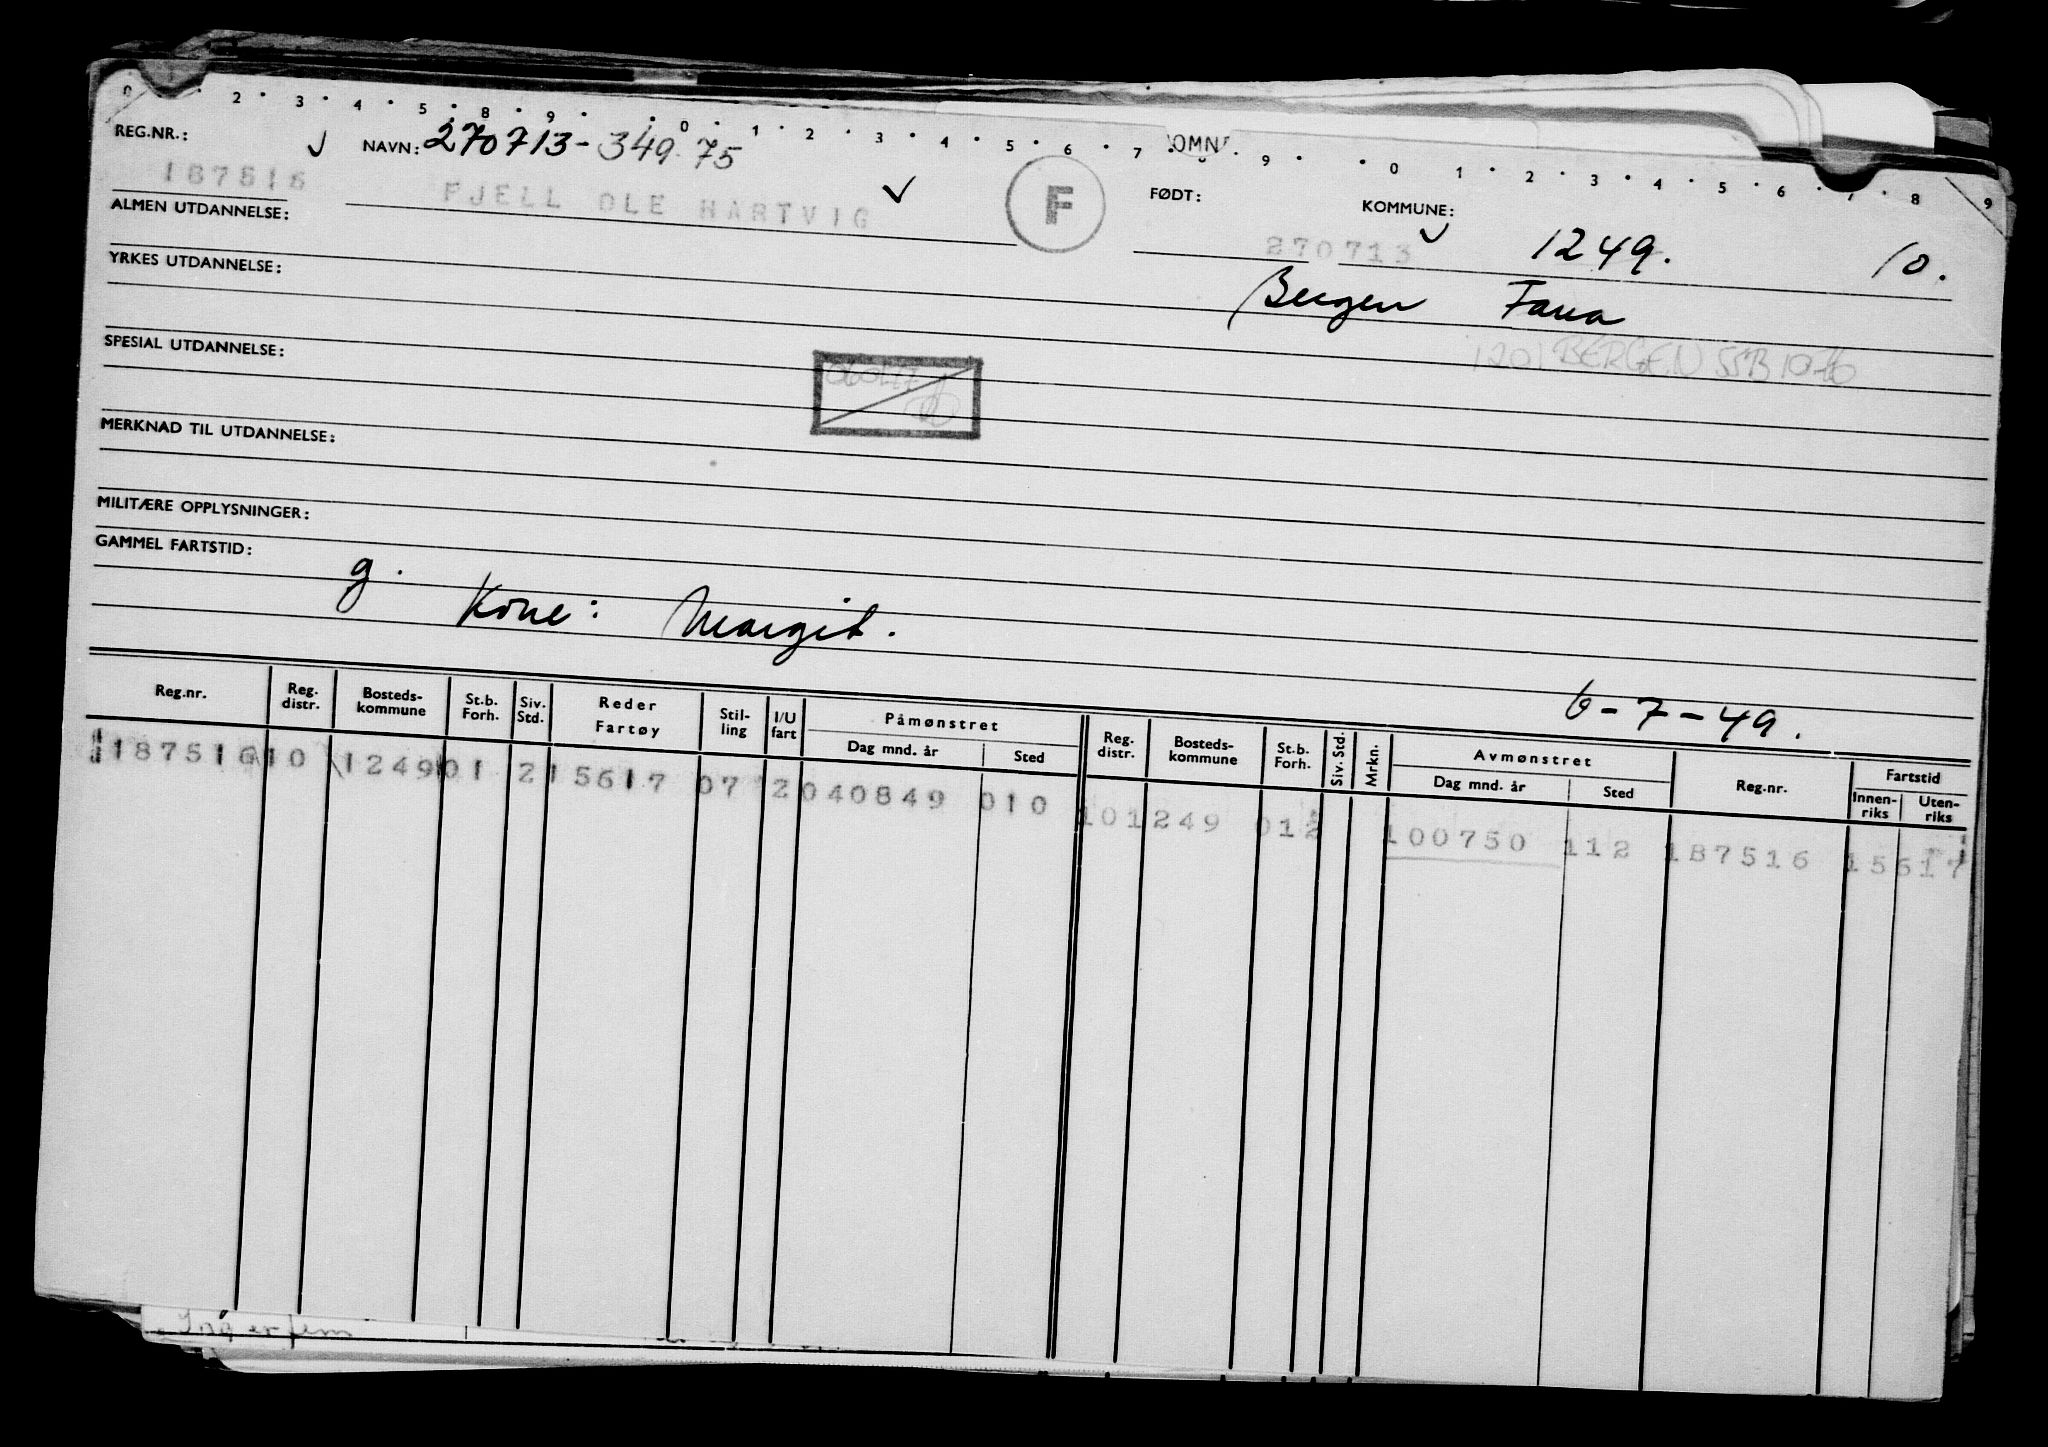 0 1 2 3 4 5 8 9 0 1 2 3 4 5 6 7 9 0 1 2 3 4 5 6 7 8 9
REG.NR.: NAVN: 270713-349.75 FØDT: KOMMUNE:
187516 FJELL OLE HARTVIG F 270713 1249. 10.
ALMEN UTDANNELSE:
Bergen Fana
YRKES UTDANNELSE:
1201 BERGEN SSB 10
SPESIAL UTDANNELSE:
MERKNAD TIL UTDANNELSE:
MILITÆRE OPPLYSNINGER:
GAMMEL FARTSTID:
g.
Kone: Margit.
6-7-49.
Reg.nr. Reg. distr. Bosteds-kommune St.b. Forh. Siv. Std. Reder Fartøy Stil-ling I/U fart Påmønstret Dag mnd. år Sted Reg. distr. Bosteds-kommune St.b. Forh. Siv. Std. Mrkn. Avmønstret Dag mnd. år Sted Reg.nr. Fartstid Innen-riks Uten-riks
187516 10 1249 01 2 15617 07 2 040849 010 10 1249 01 2 100750 112 187516 15617